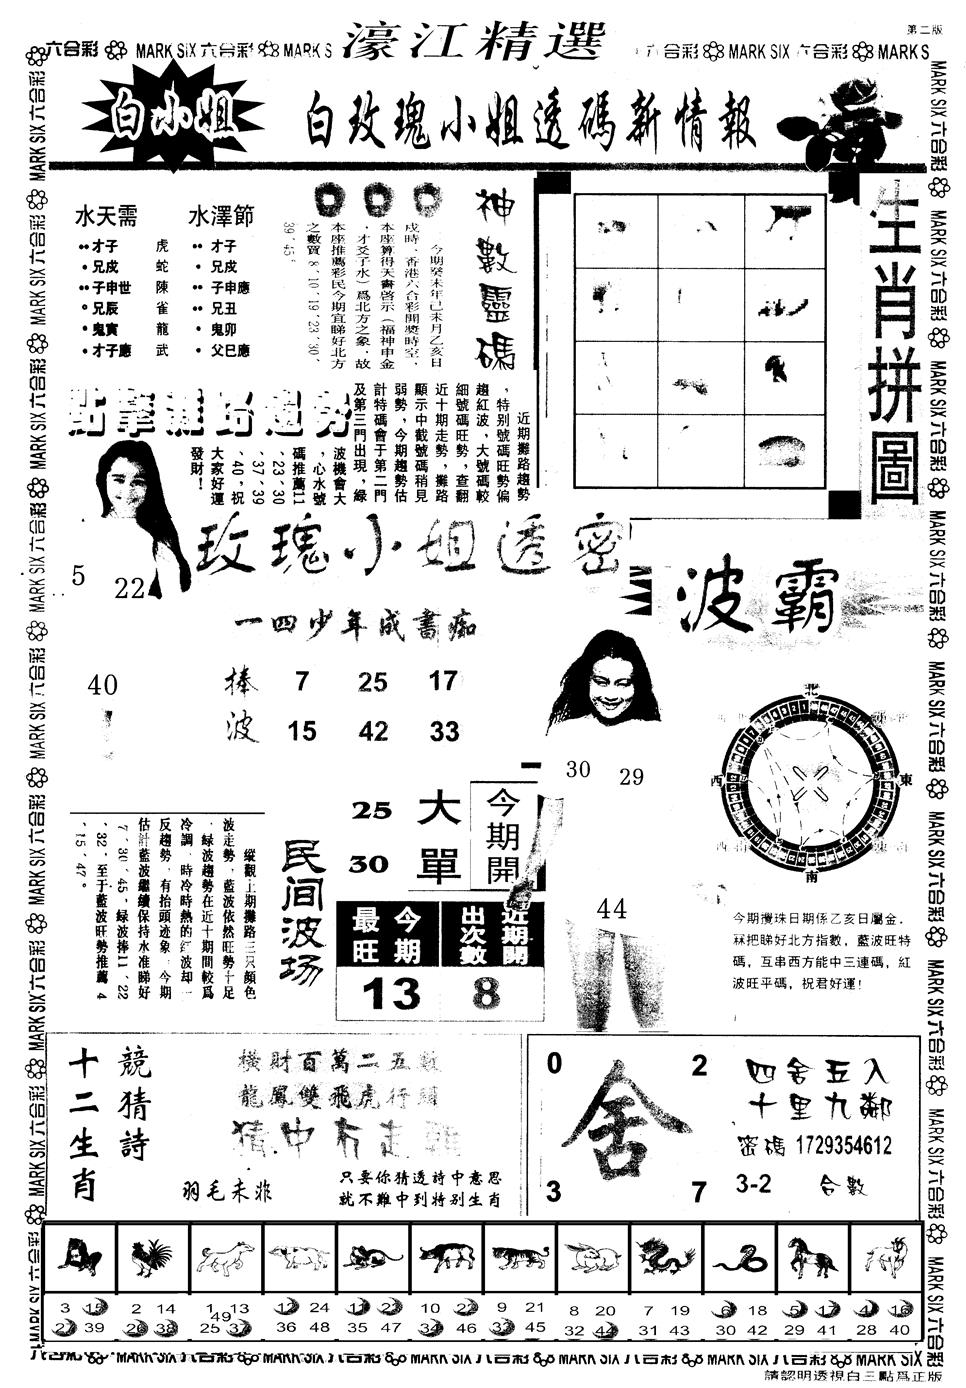 第二版
六合彩 MARK SIX 六合彩 MARK S
濠江精選
六合彩 MARK SIX 六合彩 MARK S
白小姐
白玫瑰小姐透碼新情報
水天需 水澤節
才子 虎 才子
兄戌 蛇 兄戌
子申世 陳 子申應
兄辰 雀 兄丑
鬼寅 龍 鬼卯
才子應 武 父巳應
神數靈碼
今期癸未年己未月乙亥日
戌時、香港六合彩開獎時空，
本座算得天書啓示（福神申金
，才爻子水）爲北方之象，故
本座推薦彩民今期宜睇好北方
之數買8、10、19、23、30、
39、45。
生肖拼圖
點擊攤路趨勢
近期攤路趨勢
，特別號碼旺勢偏
趨紅波，大號碼較
細號碼旺勢，查翻
近十期走勢，攤路
顯示中截號碼稍見
弱勢，今期趨勢估
計特碼會于第二門
及第三門出現，綠
波機會大
，心水號
碼推薦11
、23、30
、37、39
、40，祝
大家好運
發財！
玫瑰小姐透密
5 22
一四少年成書痴
40
捧波
7 25 17
15 42 33
波霸
30 29
44
北
西 東
南
今期攪珠日期係乙亥日屬金，
冧把睇好北方指數，藍波旺特
碼，互串西方能中三連碼，紅
波旺平碼，祝君好運！
縱觀上期攤路三只顏色
波走勢，藍波依然旺勢十足
，緑波趨勢在近十期間較爲
冷調，時冷時熱的紅波却一
反趨勢，有抬頭迹象，今期
估計藍波繼續保持水准睇好
7、30、45，緑波捧11、22
、32，至于藍波旺勢推薦4
、15、47。
民间波场
25 大
30 單
今期開
今期最旺 近期開出次數
13 8
十二生肖
競猜詩
橫財百萬二五數
龍鳳雙飛虎行頭
猜中冇走雞
羽毛未非
只要你猜透詩中意思
就不難中到特别生肖
0 2
舍
3 7
四舍五入
十里九鄰
密碼 1729354612
3-2 合數
3 15 2 14 1 13 12 24 11 23 10 22 9 21 8 20 7 19 6 18 5 17 4 16
27 39 26 38 25 37 49 36 48 35 47 34 46 33 45 32 44 31 43 30 42 29 41 28 40
六合彩 MARK SIX 六合彩 MARK SIX 六合彩 MARK SIX
請認明透視白三點爲正版